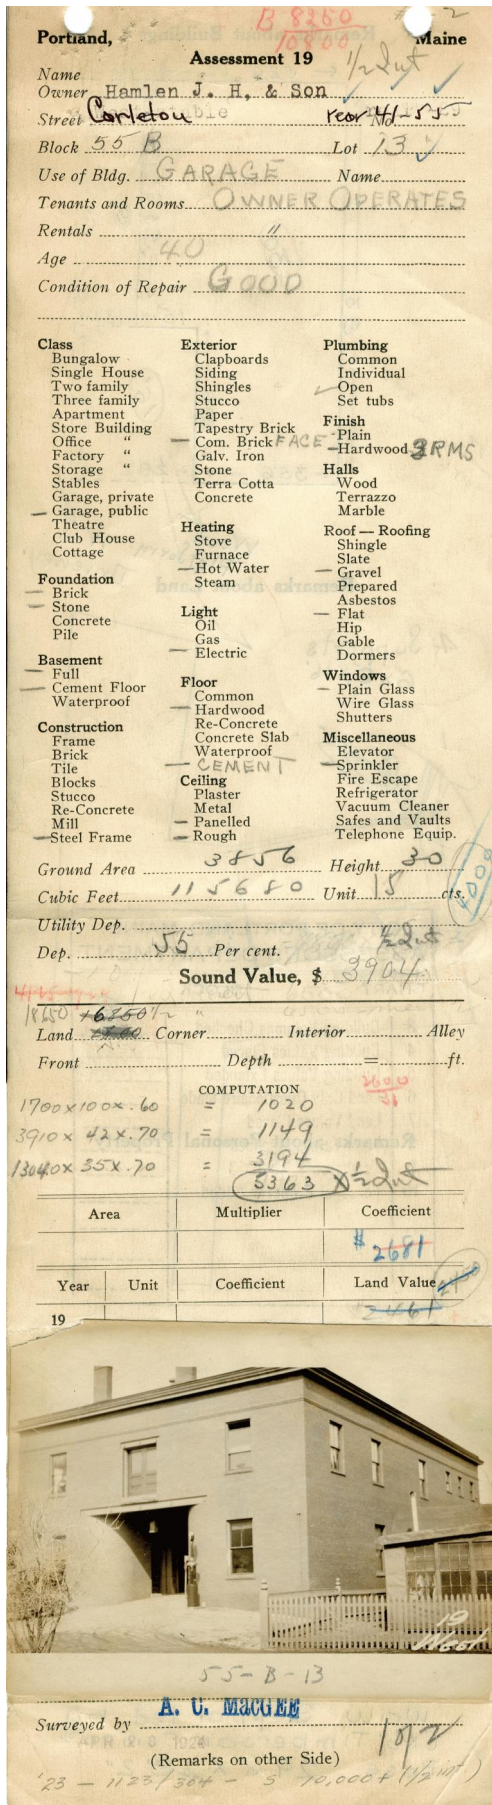 B 8250
10800
Portland, Maine
Assessment 19
1/2 Int
Name
Owner Hamlen J. H. & Son
Street Carleton rear 41-55 No
Block 55 B Lot 13
Use of Bldg. GARAGE Name
Tenants and Rooms OWNER OPERATES
Rentals "
Age 40
Condition of Repair GOOD
Class
Bungalow
Single House
Two family
Three family
Apartment
Store Building
Office "
Factory "
Storage "
Stables
Garage, private
— Garage, public
Theatre
Club House
Cottage
Foundation
— Brick
— Stone
Concrete
Pile
Basement
— Full
— Cement Floor
Waterproof
Construction
Frame
Brick
Tile
Blocks
Stucco
Re-Concrete
Mill
— Steel Frame
Exterior
Clapboards
Siding
Shingles
Stucco
Paper
Tapestry Brick
— Com. Brick FACE
Galv. Iron
Stone
Terra Cotta
Concrete
Heating
Stove
Furnace
— Hot Water
Steam
Light
Oil
Gas
— Electric
Floor
Common
— Hardwood
Re-Concrete
Concrete Slab
Waterproof
— CEMENT
Ceiling
Plaster
Metal
— Panelled
— Rough
Plumbing
Common
Individual
✓ Open
Set tubs
Finish
Plain
— Hardwood 3 RMS
Halls
Wood
Terrazzo
Marble
Roof — Roofing
Shingle
Slate
— Gravel
Prepared
Asbestos
— Flat
Hip
Gable
Dormers
Windows
— Plain Glass
Wire Glass
Shutters
Miscellaneous
Elevator
— Sprinkler
Fire Escape
Refrigerator
Vacuum Cleaner
Safes and Vaults
Telephone Equip.
Ground Area 3856 Height 30
Cubic Feet 115680 Unit 15 cts.
Utility Dep. 1/2 Int
Dep. 55 Per cent.
Sound Value, $ 3904
18650
Land Corner Interior Alley
Front Depth = ft.
COMPUTATION
2600
31
1700 x 100 x .60 = 1020
3910 x 42 x .70 = 1149
13040 x 35 x .70 = 3194
5363 x 1/2 Int
Area Multiplier Coefficient
$ 2681
Year Unit Coefficient Land Value
19
19
West
55-B-13
Surveyed by A. C. MacGEE
192
(Remarks on other Side)
'23 - 1123/304 - S 10,000 + (1/2 int.)